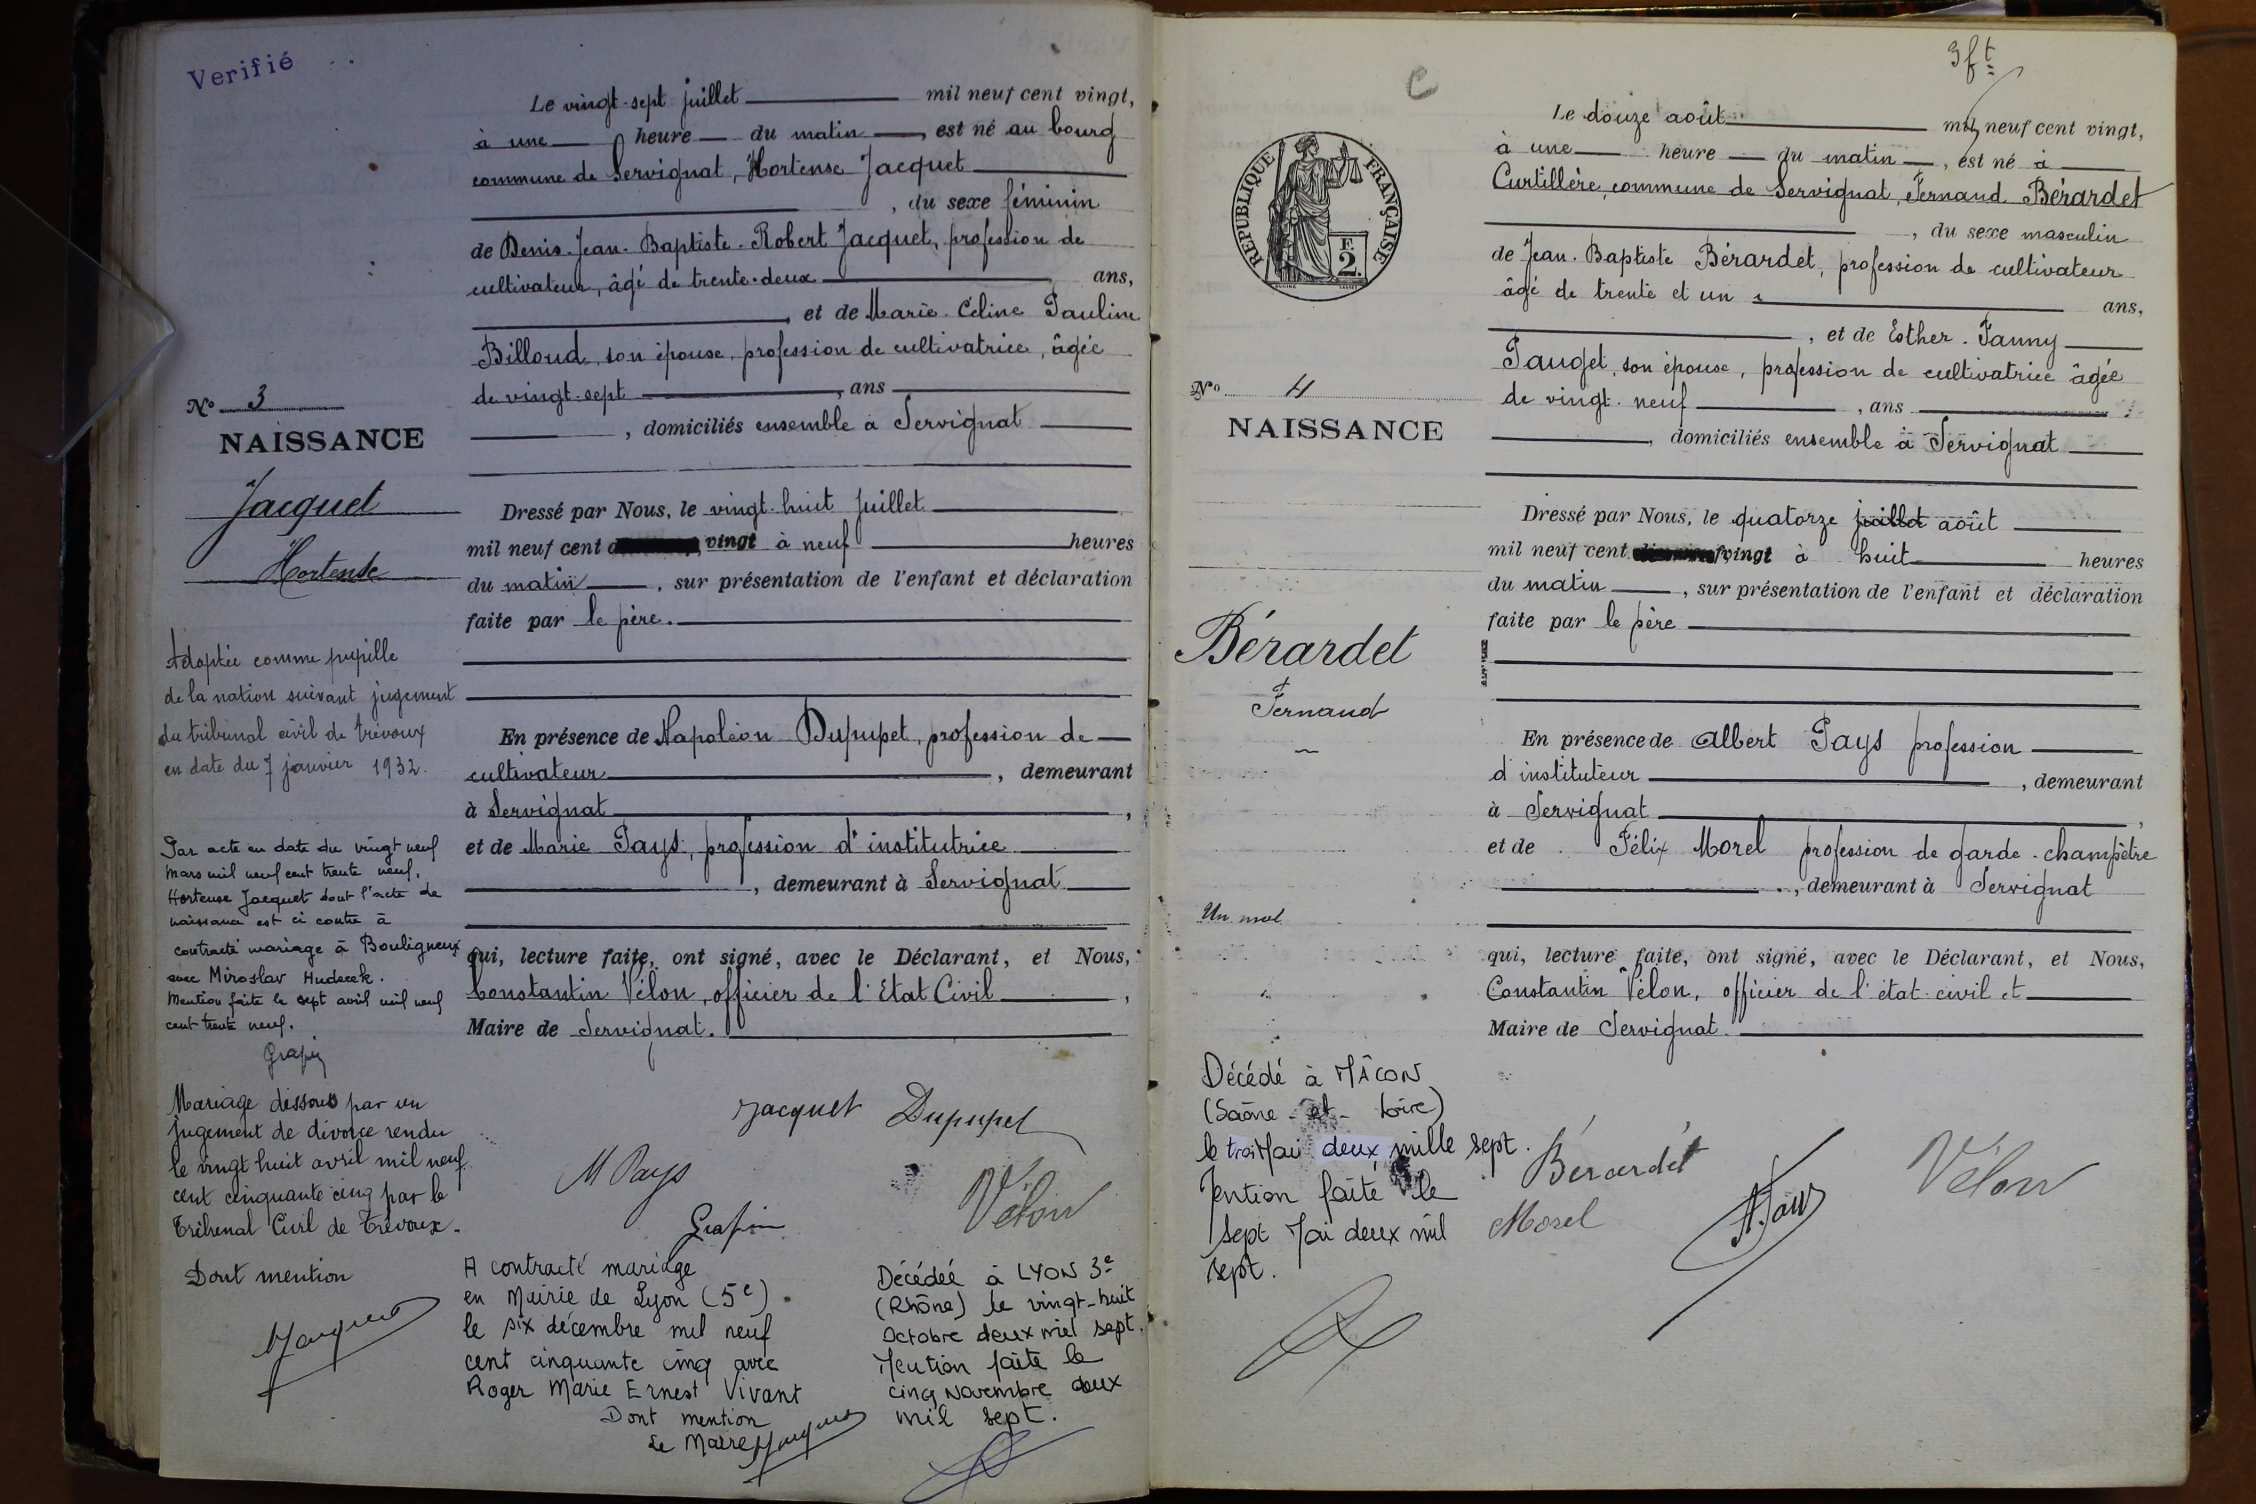 Verifié
Le vingt-sept juillet mil neuf cent vingt,
à une heure du matin, est né au bourg
commune de Servignat, Hortense Jacquet
, du sexe féminin
de Denis-Jean-Baptiste-Robert Jacquet, profession de
cultivateur, âgé de trente-deux ans,
et de Marie-Céline Pauline
Billoud, son épouse, profession de cultivatrice, âgée
de vingt-sept, ans
, domiciliés ensemble à Servignat
No 3
NAISSANCE
Jacquet
Hortense
Dressé par Nous, le vingt-huit juillet
mil neuf cent vingt à neuf heures
du matin, sur présentation de l'enfant et déclaration
faite par le père.
En présence de Napoléon Dupupet, profession de
cultivateur, demeurant
à Servignat,
et de Marie Pays, profession d'institutrice
, demeurant à Servignat
qui, lecture faite, ont signé, avec le Déclarant, et Nous,
Constantin Vélon, officier de l'Etat Civil,
Maire de Servignat.
Adoptée comme pupille
de la nation suivant jugement
du tribunal civil de trévoux
en date du 7 janvier 1932.
Par acte en date du vingt neuf
mars mil neuf cent trente neuf,
Hortense Jacquet dont l'acte de
naissance est ci contre à
contracté mariage à Bouligneux
avec Miroslav Hudecek.
Mention faite le sept avril mil neuf
cent trente neuf.
Grafin
Mariage dissous par un
jugement de divorce rendu
le vingt huit avril mil neuf
cent cinquante cinq par le
Tribunal Civil de Trévoux.
Dont mention
Jacquet Dupupet
M Pays
Grafin
Vélon
A contracté mariage
en Mairie de Lyon (5e)
le six décembre mil neuf
cent cinquante cinq avec
Roger Marie Ernest Vivant
Dont mention
Le Maire
Décédée à LYON 3e
(Rhône) le vingt-huit
Octobre deux mil sept.
Mention faite le
cinq Novembre deux
mil sept.
C
3 ft
RÉPUBLIQUE FRANÇAISE
F. 2.
Le douze août mil neuf cent vingt,
à une heure du matin, est né à
Curtillère, commune de Servignat, Fernand Bérardet
, du sexe masculin
de Jean-Baptiste Bérardet, profession de cultivateur
âgé de trente et un ans,
, et de Esther-Fanny
Pauget, son épouse, profession de cultivatrice âgée
de vingt-neuf, ans
, domiciliés ensemble à Servignat
No 4
NAISSANCE
Bérardet
Fernand
Dressé par Nous, le quatorze juillet août
mil neuf cent vingt à huit heures
du matin, sur présentation de l'enfant et déclaration
faite par le père
En présence de Albert Pays profession
d'instituteur, demeurant
à Servignat,
et de Félix Morel profession de garde-champêtre
, demeurant à Servignat
Un mot
qui, lecture faite, ont signé, avec le Déclarant, et Nous,
Constantin Vélon, officier de l'état-civil et
Maire de Servignat.
Décédé à MÂCON
(Saône-et-Loire)
le trois Mai deux mille sept.
Mention faite le
sept Mai deux mil
sept.
Bérardet
Morel
A. Pays
Vélon